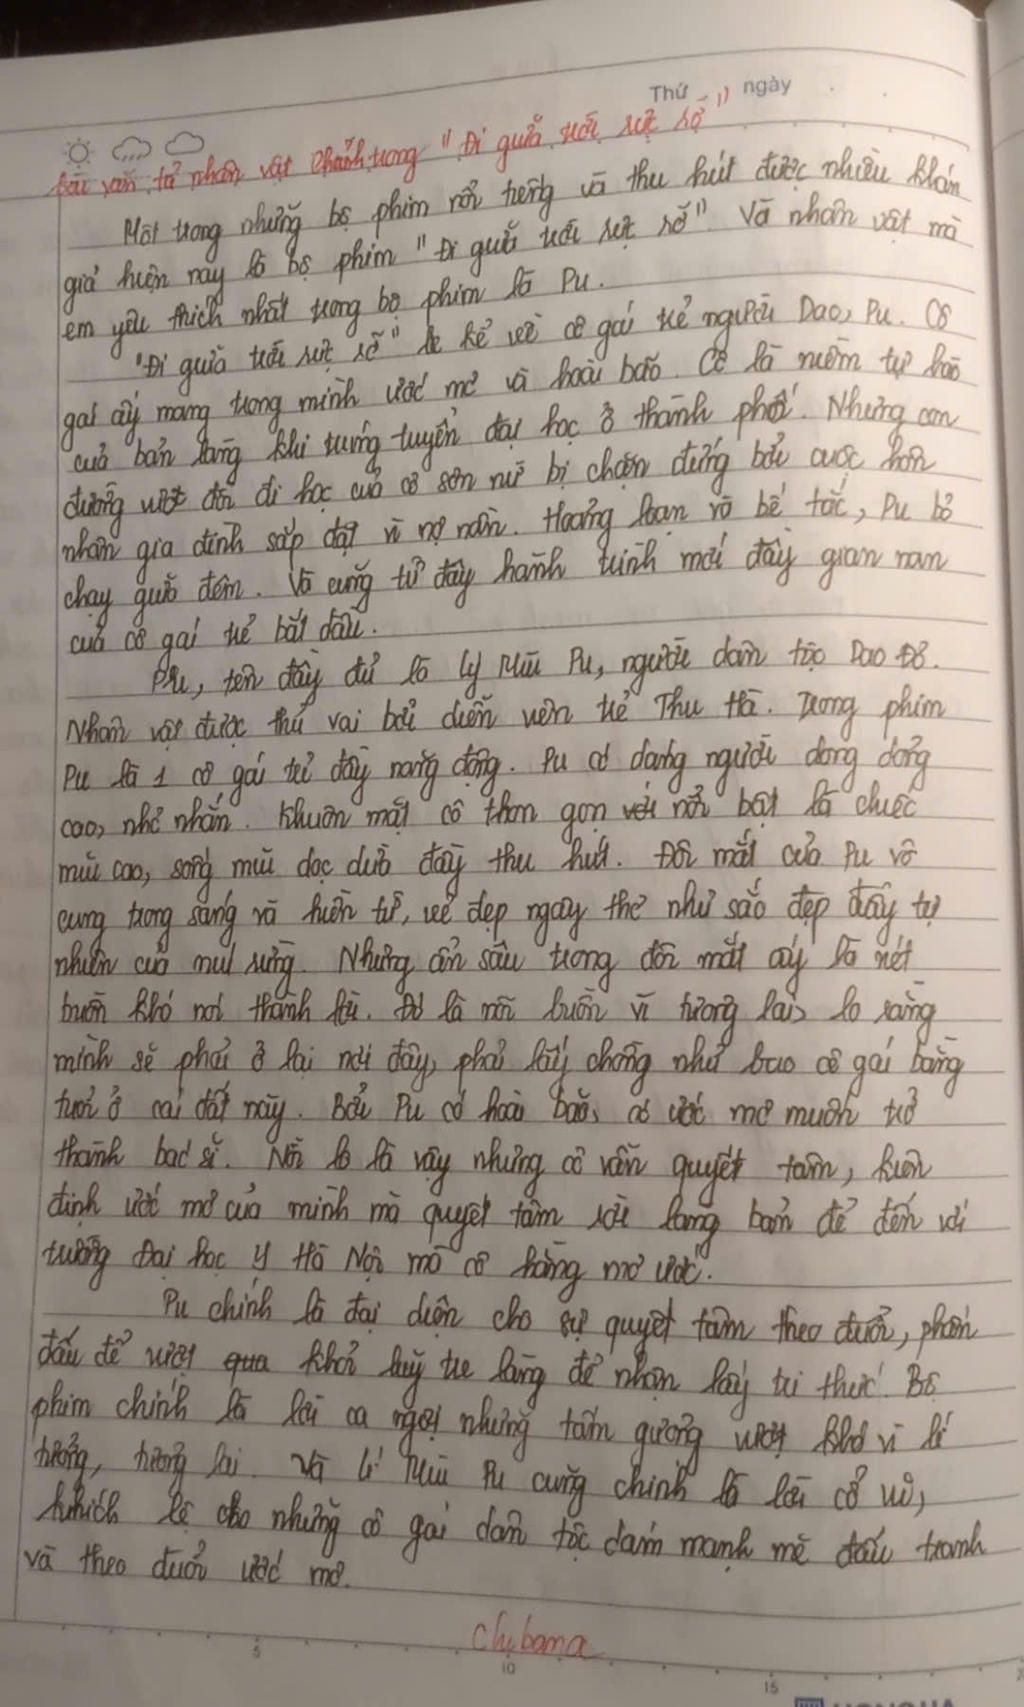 Thứ ngày
Bài văn tả nhân vật chính trong "Đi giữa trời rực rỡ"
Một trong những bộ phim nổi tiếng và thu hút được nhiều khán
giả hiện nay là bộ phim "Đi giữa trời rực rỡ". Và nhân vật mà
em yêu thích nhất trong bộ phim là Pu.
"Đi giữa trời rực rỡ" kể về cô gái trẻ người Dao, Pu. Cô
gái ấy mang trong mình ước mơ và hoài bão. Cô là niềm tự hào
của bản làng khi trúng tuyển đại học ở thành phố. Nhưng con
đường vượt đồi đi học của cô sơn nữ bị chặn đứng bởi cuộc hôn
nhân gia đình sắp đặt vì nợ nần. Hoảng loạn và bế tắc, Pu bỏ
chạy giữa đêm. Và cũng từ đây hành trình mới đầy gian nan
của cô gái trẻ bắt đầu.
Pu, tên đầy đủ là Lý Mùi Pu, người dân tộc Dao Đỏ.
Nhân vật được thủ vai bởi diễn viên trẻ Thu Hà. Trong phim
Pu là 1 cô gái trẻ đầy năng động. Pu có dáng người dong dỏng
cao, nhỏ nhắn. Khuôn mặt cô thon gọn với nổi bật là chiếc
mũi cao, sống mũi dọc dừa đầy thu hút. Đôi mắt của Pu vô
cùng trong sáng và hiền từ, vẻ đẹp ngây thơ như sắc đẹp đầy tự
nhiên của núi rừng. Nhưng ẩn sâu trong đôi mắt ấy là nét
buồn khó nói thành lời. Đó là nỗi buồn vì tương lai, lo rằng
mình sẽ phải ở lại nơi đây, phải lấy chồng như bao cô gái bằng
tuổi ở cái đất này. Bởi Pu có hoài bão, có ước mơ muốn trở
thành bác sĩ. Nỗi lo là vậy nhưng cô vẫn quyết tâm, kiên
định ước mơ của mình mà quyết tâm rời làng bản để đến với
trường Đại học Y Hà Nội mà cô hằng mơ ước.
Pu chính là đại diện cho sự quyết tâm theo đuổi, phấn
đấu để vượt qua khỏi luỹ tre làng để nhận lấy tri thức. Bộ
phim chính là lời ca ngợi những tấm gương vượt khó vì lí
tưởng, tương lai. Và Lí Mùi Pu cũng chính là lời cổ vũ,
khích lệ cho những cô gái dân tộc dám mạnh mẽ đấu tranh
và theo đuổi ước mơ.
Chibama
5
10
15